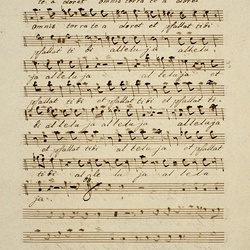 te a doret omnis terra te a doret et psallat tibi
omnis terra te a doret et psallat tibi
psallat ti bi alleluja allelu
ja alleluja alleluja et
psallat tibi et psallat tibi et psallat
tibi alleluja alleluja
et psallat tibi alleluja et psallat
tibi alle lu ja alle lu
ja.